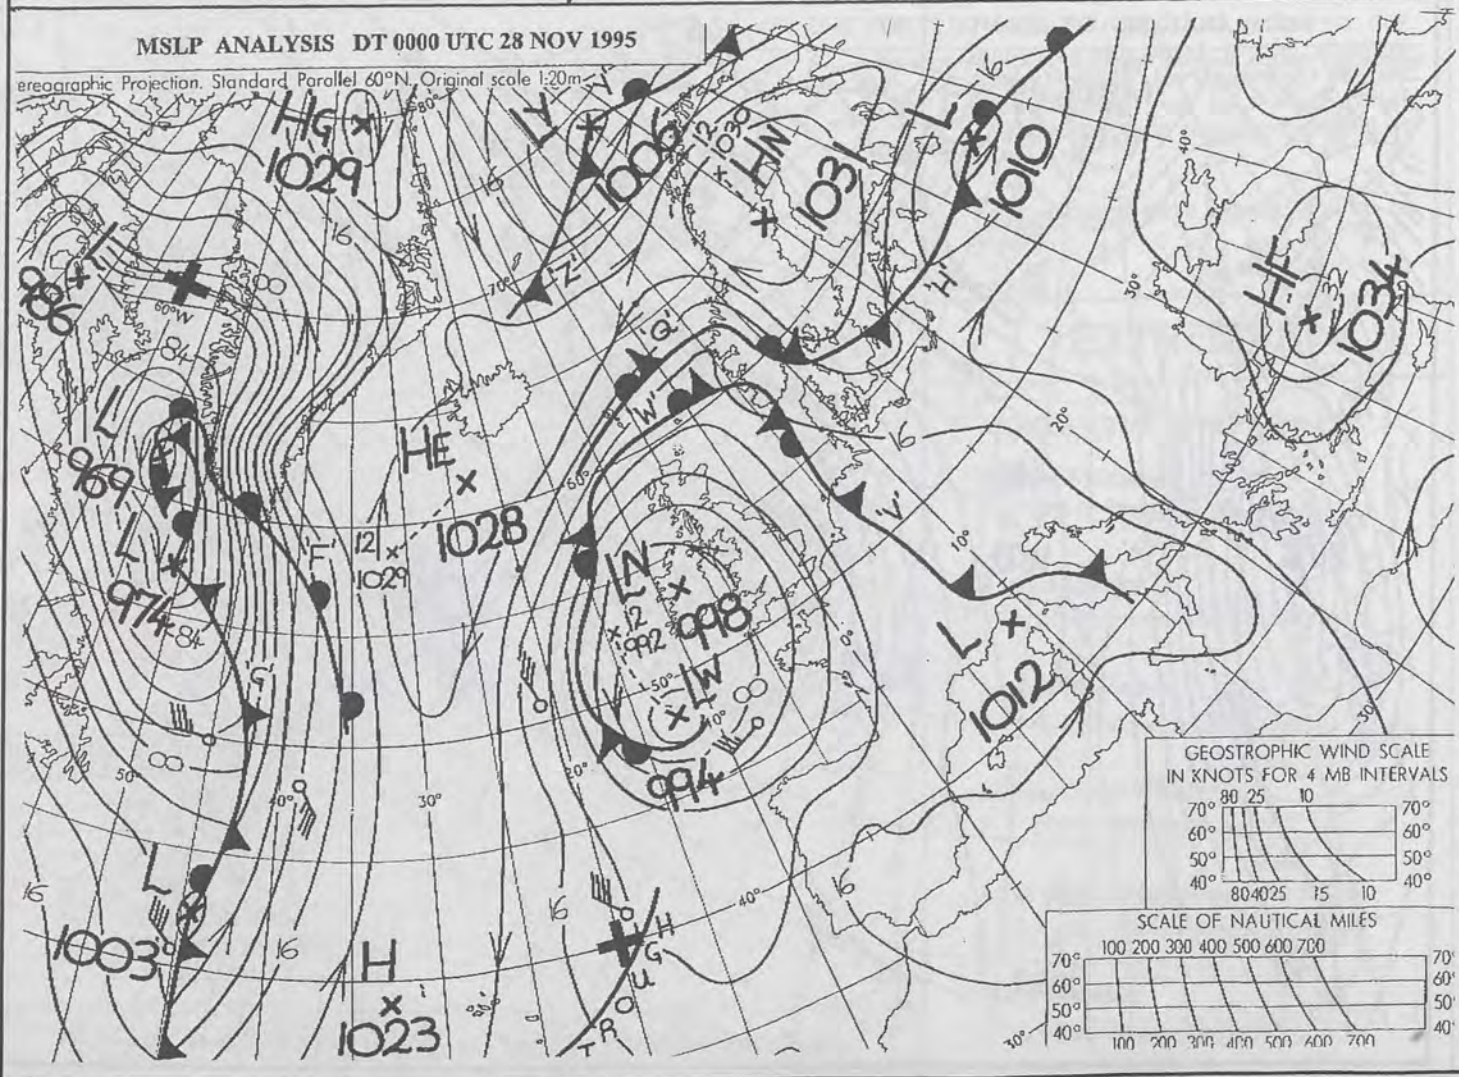 MSLP ANALYSIS DT 0000 UTC 28 NOV 1995
ereographic Projection. Standard Parallel 60°N. Original scale 1:20m
80°
16
HG
1029
LY
'Y'
1006
12
1030
HN
1031
L
1010
16
40°
L
986
60°W
00
84
16
70°
'Z'
'Q'
'H'
30°
HF
1034
32
L
969
L
974
84
HE
1028
12
1029
'F'
'W'
60°
'V'
16
20°
10°
LN
998
12
992
0°
L
1012
'G'
50°
LW
994
10°
00
20°
00
50°
40°
30°
30°
L
1003
16
16
16
H
1023
40°
16
TROUGH
30°
GEOSTROPHIC WIND SCALE
IN KNOTS FOR 4 MB INTERVALS
80 25 10
70° 70°
60° 60°
50° 50°
40° 40°
80 40 25 15 10
SCALE OF NAUTICAL MILES
100 200 300 400 500 600 700
70° 70°
60° 60°
50° 50°
40° 40°
100 200 300 400 500 600 700